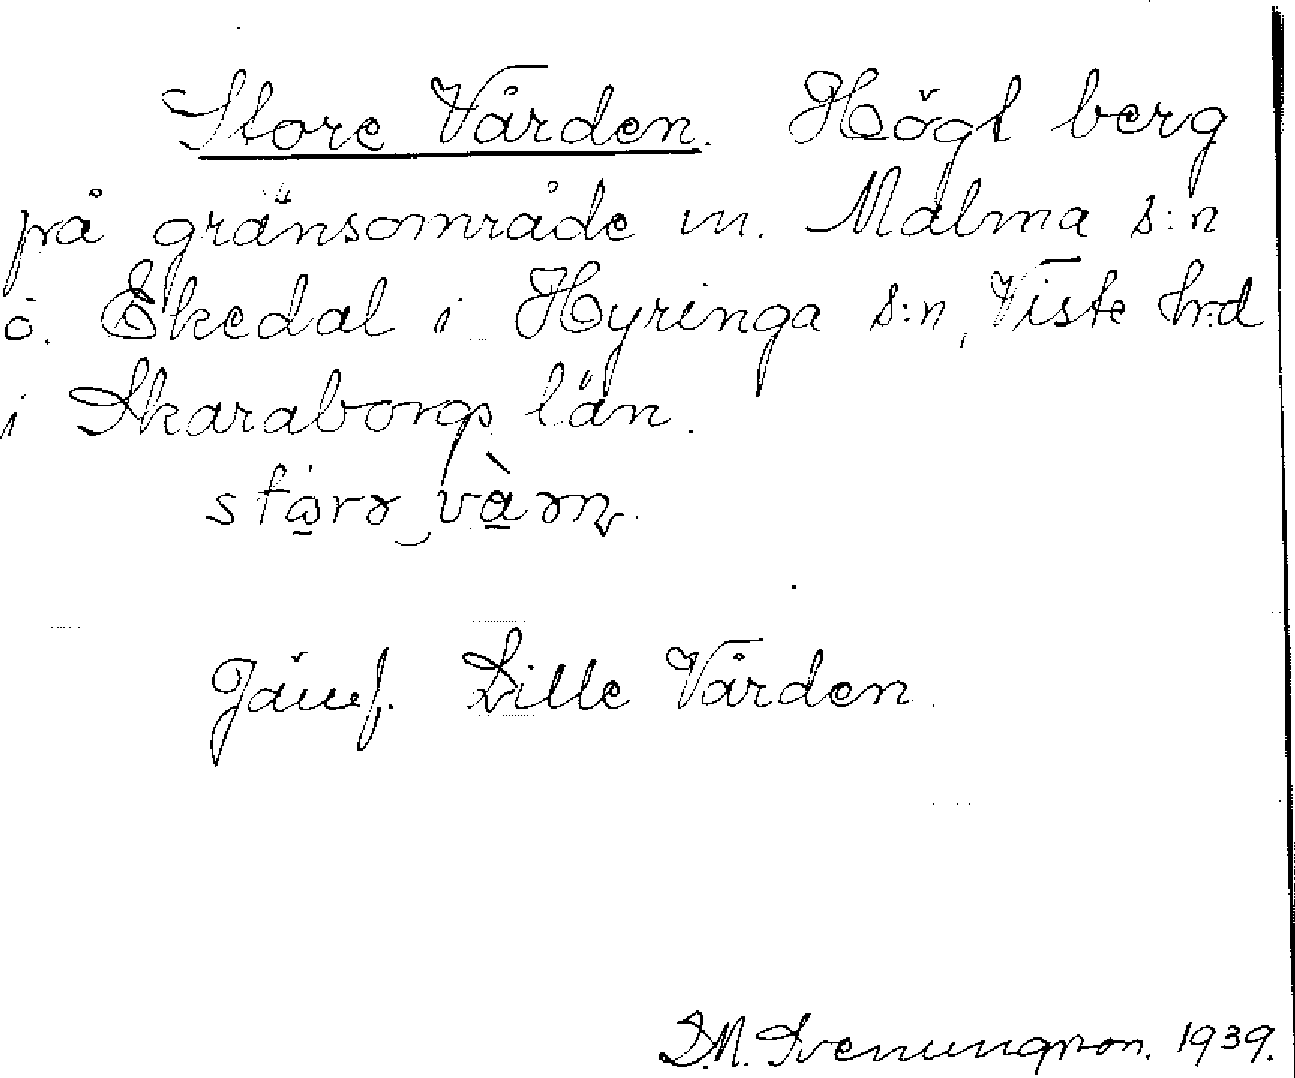 Store Vården. Högt berg
på gränsområde m. Malma s:n
ö. Ekedal i Hyringa s:n, Viste hrd
i Skaraborgs län.
Jämf. Lille Vården.
D.M. Svenungsson. 1939.